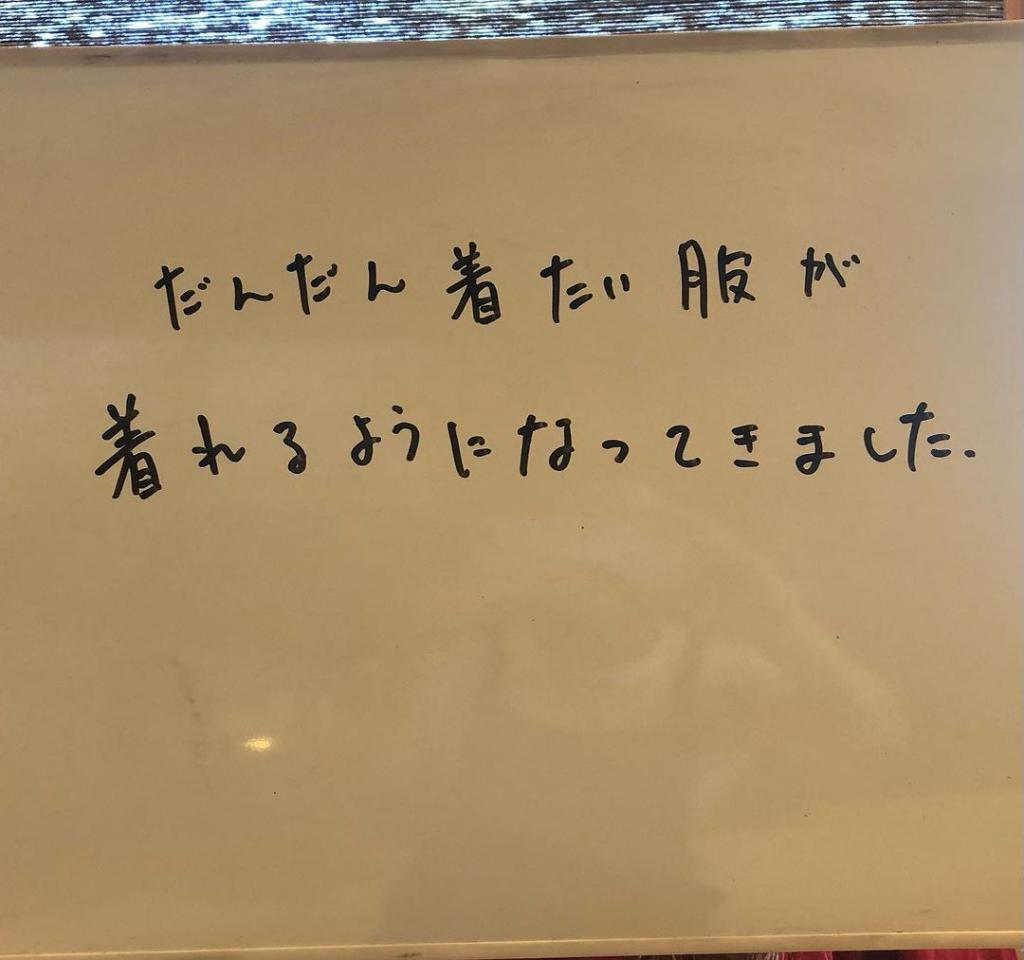 だんだん着たい服が
着れるようになってきました.